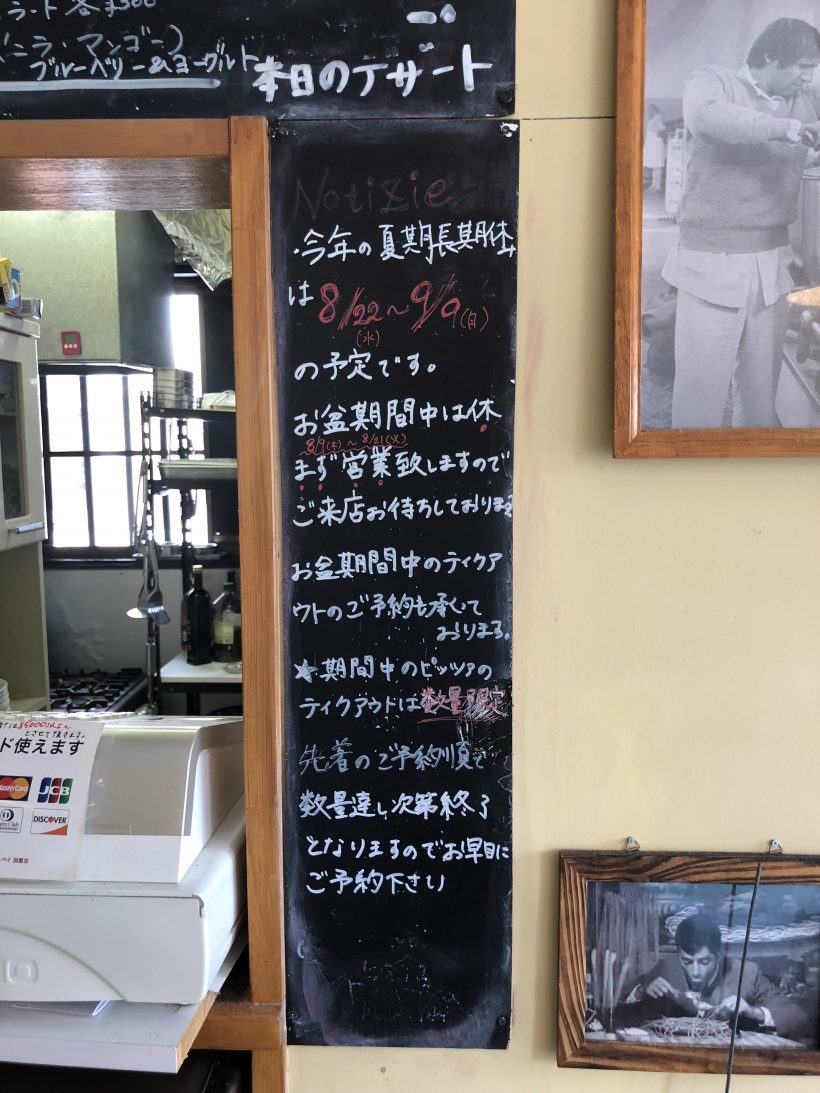 ラート 各¥500
(バニラ・マンゴー)
ブルーベリー&ヨーグルト
本日のデザート
Notizie
・今年の夏期長期休み
は 8/22~9/9(日)
(水)
の予定です。
お盆期間中は休
8/9(木)~8/21(火)
まず営業致しますので
ご来店お待ちしております
お盆期間中のテイクア
ウトのご予約も承って
おります。
★期間中のピッツァの
テイクアウトは数量限定
先着のご予約順で
数量達し次第終了
となりますのでお早目に
ご予約下さい
¥5000以上~
とさせて頂きます。
ド使えます
MasterCard
JCB
Diners Club
DISCOVER